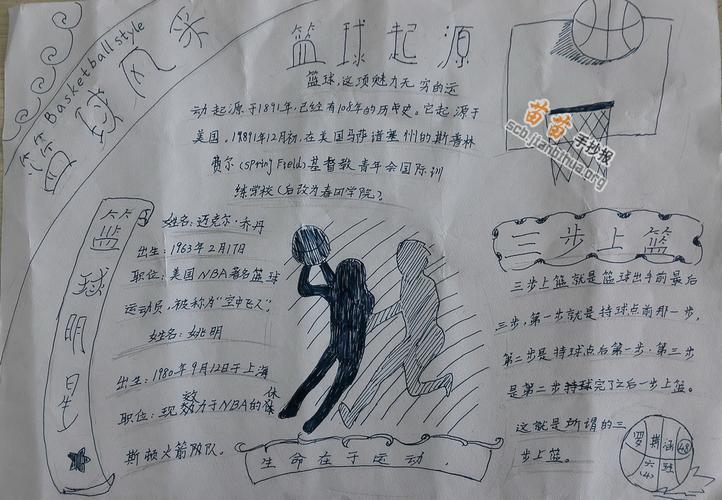 Basketball style
篮球风采
篮球起源
篮球,这项魅力无穷的运
动起源于1891年,已经有108年的历史。它起源于
美国,19891年12月初,在美国马萨诸塞州的斯普林
费尔(Spring Field)基督教青年会国际训
练学校(后改为春田学院)?
苗苗手抄报
scb.jianbihua.org
篮球明星
姓名:迈克尔·乔丹
出生:1963年2月17日
职位:美国NBA著名篮球
运动员,被称为“空中飞人”,
姓名:姚明
出生:1980年9月12日于上海
职位:现效力于NBA的休
斯顿火箭队队。
生命在于运动.
三步上篮
三步上篮就是篮球出手前最后
三步,第一步就是持球点前那一步,
第二步是持球点后第一步.第三步
是第二步持球完了之后一步上篮。
这就是所谓的三
步上篮。
六(4)班
48